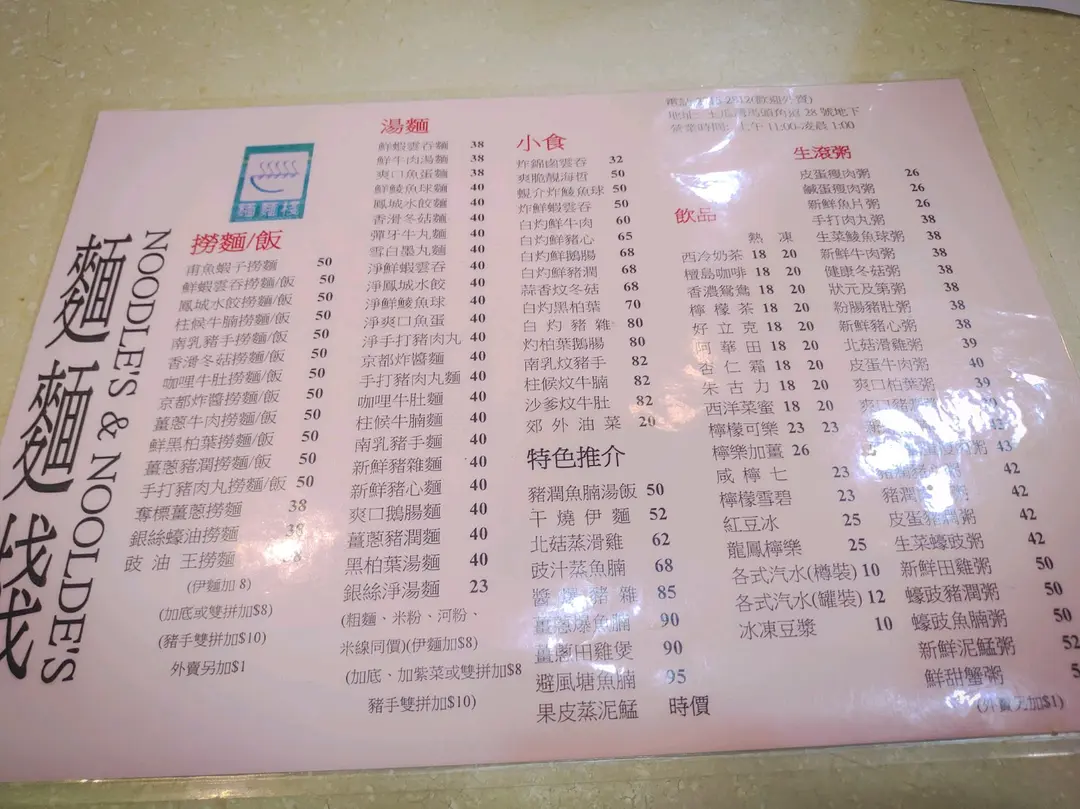 麵麵棧
NOODLE'S & NOOLDE'S
麵麵棧
撈麵/飯
甫魚蝦子撈麵 50
鮮蝦雲吞撈麵/飯 50
鳳城水餃撈麵/飯 50
柱候牛腩撈麵/飯 50
南乳豬手撈麵/飯 50
香滑冬菇撈麵/飯 50
咖哩牛肚撈麵/飯 50
京都炸醬撈麵/飯 50
薑蔥牛肉撈麵/飯 50
鮮黑柏葉撈麵/飯 50
薑蔥豬潤撈麵/飯 50
手打豬肉丸撈麵/飯 50
奪標薑蔥撈麵 38
銀絲蠔油撈麵 38
豉油王撈麵 38
(伊麵加 8)
(加底或雙拼加$8)
(豬手雙拼加$10)
外賣另加$1
湯麵
鮮蝦雲吞麵 38
鮮牛肉湯麵 38
爽口魚蛋麵 38
鮮鯪魚球麵 40
鳳城水餃麵 40
香滑冬菇麵 40
彈牙牛丸麵 40
雪白墨丸麵 40
淨鮮蝦雲吞 40
淨鳳城水餃 40
淨鮮鯪魚球 40
淨爽口魚蛋 40
淨手打豬肉丸 40
京都炸醬麵 40
手打豬肉丸麵 40
咖哩牛肚麵 40
柱候牛腩麵 40
南乳豬手麵 40
新鮮豬雜麵 40
新鮮豬心麵 40
爽口鵝腸麵 40
薑蔥豬潤麵 40
黑柏葉湯麵 40
銀絲淨湯麵 23
(粗麵、米粉、河粉、
米線同價)(伊麵加$8)
(加底、加紫菜或雙拼加$8
豬手雙拼加$10)
小食
炸錦鹵雲吞 32
爽脆靚海哲 50
蜆介炸鯪魚球 50
炸鮮蝦雲吞 50
白灼鮮牛肉 60
白灼鮮豬心 65
白灼鮮鵝腸 68
白灼鮮豬潤 68
蒜香炆冬菇 68
白灼黑柏葉 70
白灼豬雜 80
灼柏葉鵝腸 80
南乳炆豬手 82
柱候炆牛腩 82
沙爹炆牛肚 82
郊外油菜 20
特色推介
豬潤魚腩湯飯 50
干燒伊麵 52
北菇蒸滑雞 62
豉汁蒸魚腩 68
醬爆豬雜 85
薑蔥爆魚腩 90
薑蔥田雞煲 90
避風塘魚腩 95
果皮蒸泥鯭 時價
2812(歡迎外賣)
地址: 土瓜灣馬頭角道 28 號地下
營業時間: 上午 11:00-凌晨 1:00
飲品
熱 凍
西冷奶茶 18 20
檀島咖啡 18 20
香濃鴛鴦 18 20
檸檬茶 18 20
好立克 18 20
阿華田 18 20
杏仁霜 18 20
朱古力 18 20
西洋菜蜜 18 20
檸檬可樂 23 23
檸樂加薑 26
咸檸七 23
檸檬雪碧 23
紅豆冰 25
龍鳳檸樂 25
各式汽水(樽裝) 10
各式汽水(罐裝) 12
冰凍豆漿 10
生滾粥
皮蛋瘦肉粥 26
鹹蛋瘦肉粥 26
新鮮魚片粥 26
手打肉丸粥 38
生菜鯪魚球粥 38
新鮮牛肉粥 38
健康冬菇粥 38
狀元及第粥 38
粉腸豬肚粥 38
新鮮豬心粥 38
北菇滑雞粥 39
皮蛋牛肉粥 40
爽口柏葉粥 39
爽口豬
42
粥 43
42
豬潤 粥 42
皮蛋豬潤粥 42
生菜蠔豉粥 42
新鮮田雞粥 50
蠔豉豬潤粥 50
蠔豉魚腩粥 50
新鮮泥鯭粥 52
鮮甜蟹粥
(外賣另加$1)